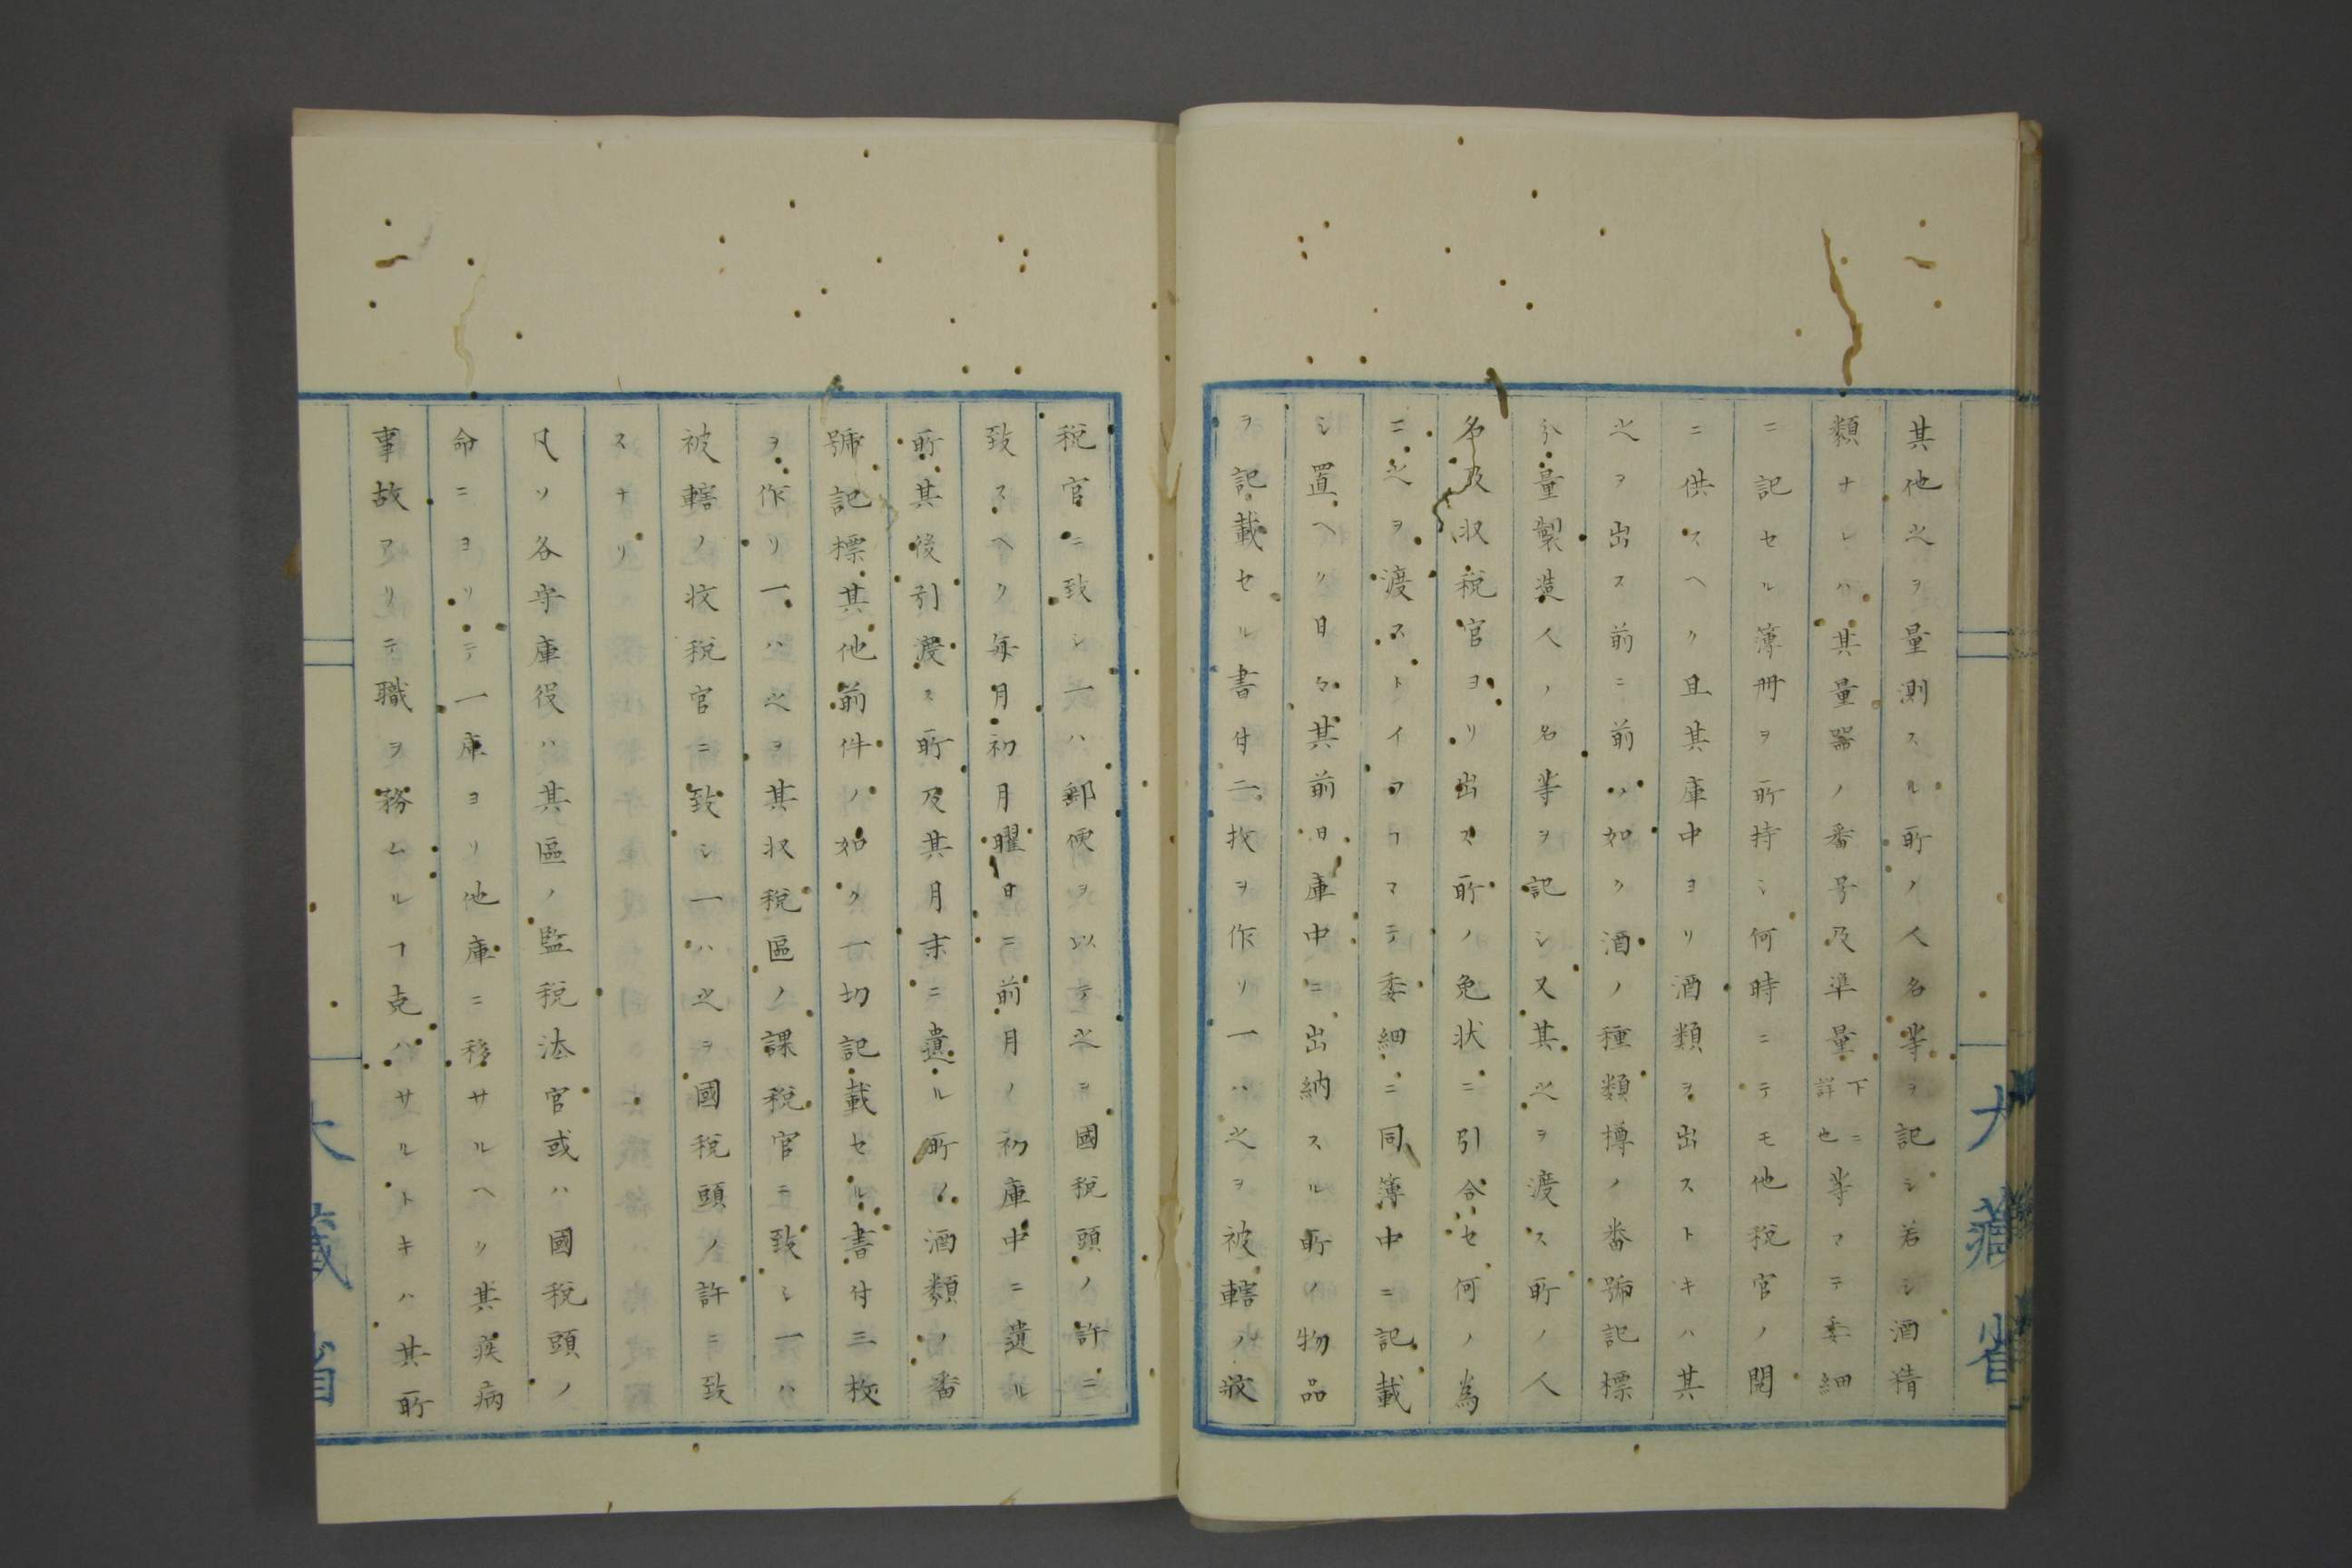 其他之ヲ量測スル所ノ人名等ヲ記シ若シ酒精
類ナレハ其量器ノ番号及準量下ニ詳也等マテ委細
ニ記セル簿冊ヲ所持シ何時ニテモ他税官ノ閲
ニ供スヘク且其庫中ヨリ酒類ヲ出ストキハ其
之ヲ出ス前ニ前ノ如ク酒ノ種類樽ノ番號記標
分量製造人ノ名等ヲ記シ又其之ヲ渡ス所ノ人
名及収税官ヨリ出ス所ノ免状ニ引合セ何ノ為
ニ之ヲ渡ストイフヿマテ委細ニ同簿中ニ記載
シ置ヘク日々其前日庫中ニ出納スル所ノ物品
ヲ記載セル書付二枚ヲ作リ一ハ之ヲ被轄ノ収
税官ニ致シ一ハ郵便ヲ以テ之ヲ國税頭ノ許ニ
致スヘク毎月初月曜日ニ前月ノ初庫中ニ遺ル
所其後引渡ス所及其月末ニ遺ル所ノ酒類ノ番
號記標其他前件ノ如ク一切記載セル書付三枚
ヲ作リ一ハ之ヲ其収税區ノ課税官ニ致シ一ハ
被轄ノ收税官ニ致シ一ハ之ヲ國税頭ノ許ニ致
スナリ
凡ソ各守庫役ハ其區ノ監税法官或ハ國税頭ノ
命ニヨリテ一庫ヨリ他庫ニ移サルヘク其疾病
事故アリテ職ヲ務ムルヿ克ハサルトキハ其所
大藏省